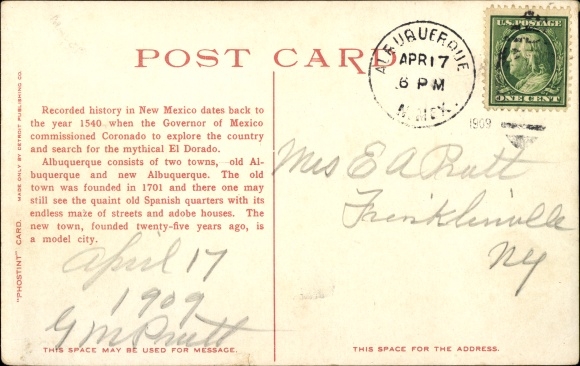 POST CARD
ALBUQUERQUE
APR 17
6 PM
N. MEX.
1909
U.S. POSTAGE
ONE CENT
"PHOSTINT" CARD. MADE ONLY BY DETROIT PUBLISHING CO.
Recorded history in New Mexico dates back to
the year 1540 when the Governor of Mexico
commissioned Coronado to explore the country
and search for the mythical El Dorado.
Albuquerque consists of two towns, old Al-
buquerque and new Albuquerque. The old
town was founded in 1701 and there one may
still see the quaint old Spanish quarters with its
endless maze of streets and adobe houses. The
new town, founded twenty-five years ago, is
a model city.
April 17
1909
G M Pratt
THIS SPACE MAY BE USED FOR MESSAGE.
Mrs E A Pratt
Franklinville
NY
THIS SPACE FOR THE ADDRESS.